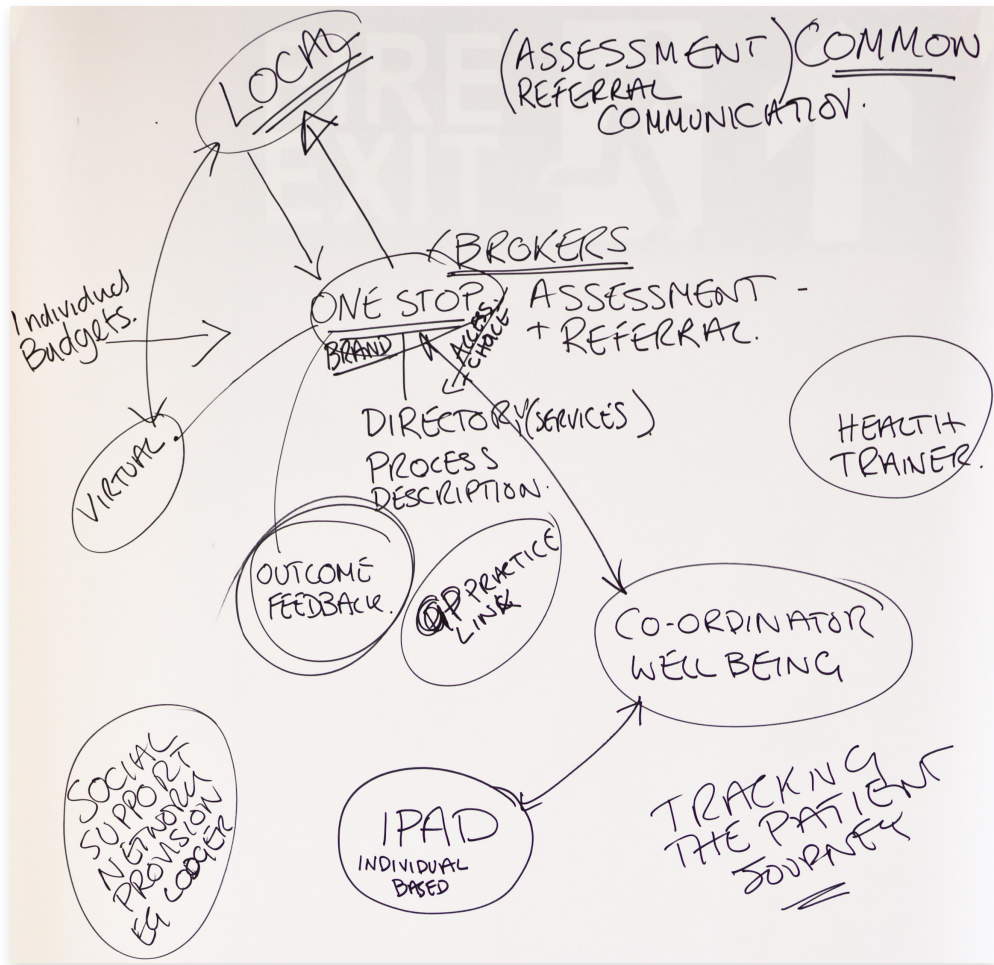 LOCAL
(ASSESSMENT) COMMON
(REFERRAL
COMMUNICATION.
BROKERS
ONE STOP
ASSESSMENT -
+ REFERRAL.
BRAND
ACCESS
+ CHOICE
Individual
Budgets.
VIRTUAL.
DIRECTORY (SERVICES)
PROCESS
DESCRIPTION.
HEALTH
TRAINER.
OUTCOME
FEEDBACK.
GP PRACTICE
LINK
CO-ORDINATOR
WELL BEING
SOCIAL
SUPPORT
NETWORK
PROVISION
EG
IPAD
INDIVIDUAL
BASED
TRACKING
THE PATIENT
JOURNEY
FIRE
EXIT